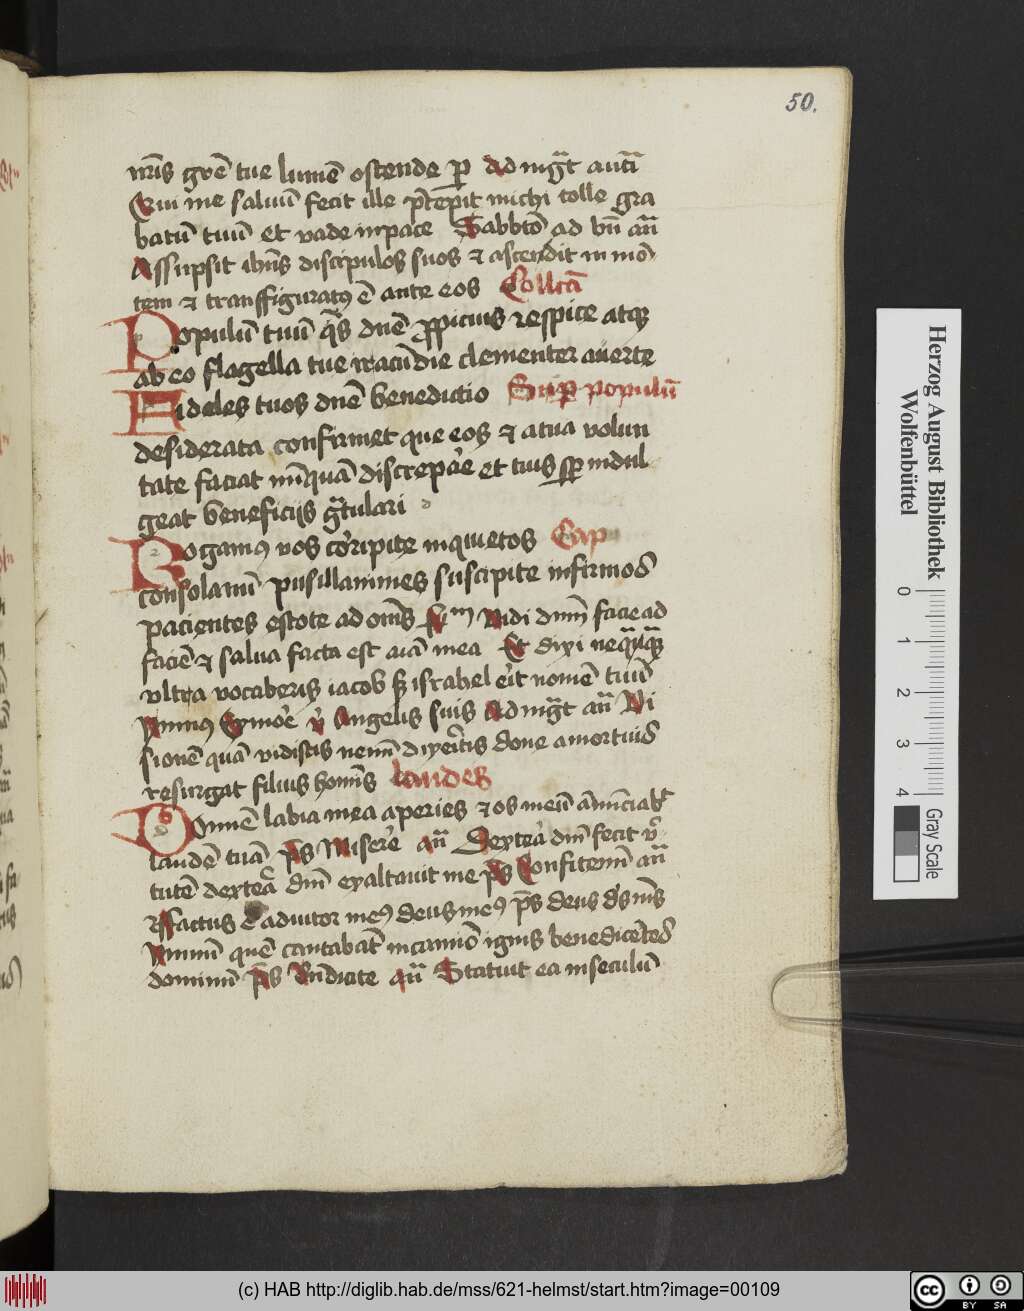 50.
nr̄is grē tue lumē ostende p Ad mgt̄ antā
Qui me saluū fecit ille p̄cepit michi tolle gra
batū tuū et vade in pace Sabbto ad bn̄ an̄
Assūpsit ihūs discipulos suos ⁊ ascendit in mō
tem ⁊ transfiguratꝰ ē ante eos Collcā
Populū tuū q̄s dnē ꝓpicius respice atqꝫ
ab eo flagella tue iracūdie clementer auerte
Fideles tuos dnē benedictio Suꝑ populū
desiderata confirmet que eos ⁊ a tua volun
tate faciat nūquā discrepāe et tuis sꝑ indul
geat beneficijs g̃tulari
Rogamꝰ vos cōripite inquietos Cap
consolamī pusillanimes suscipite infirmos
pacientes estote ad om̄s Vidi dnm̄ facie ad
faciē ⁊ salua facta est aīa mea Et dixi neq̄q̄ꝫ
vltra vocaberis iacob sꝫ israhel eīt nomē tuū
Ymnꝰ v̄ Angelis suis Ad mgt̄ an̄ Vi
sionē quā vidistis nemī dixeītis donec a mortuis
resurgat filius homīs laudes
Domnē labia mea aperies ⁊ os meū anūciabt̄
laudē tuā p̄s Miserēe an̄ Dextēa dnī fecit v̄r
tutē dextēa dnī exaltauit me p̄s Confitemī an̄
Factus ē adiutor meꝰ deus meꝰ p̄s deus ds̄ ms̄
Ymnū quē cantabāt in camīo ignis benedicētes
dominū p̄s Bn̄dicite an̄ Statuit ea in seculū
Herzog August Bibliothek
Wolfenbüttel
0 1 2 3 4
Gray Scale
(c) HAB http://diglib.hab.de/mss/621-helmst/start.htm?image=00109
cc BY SA